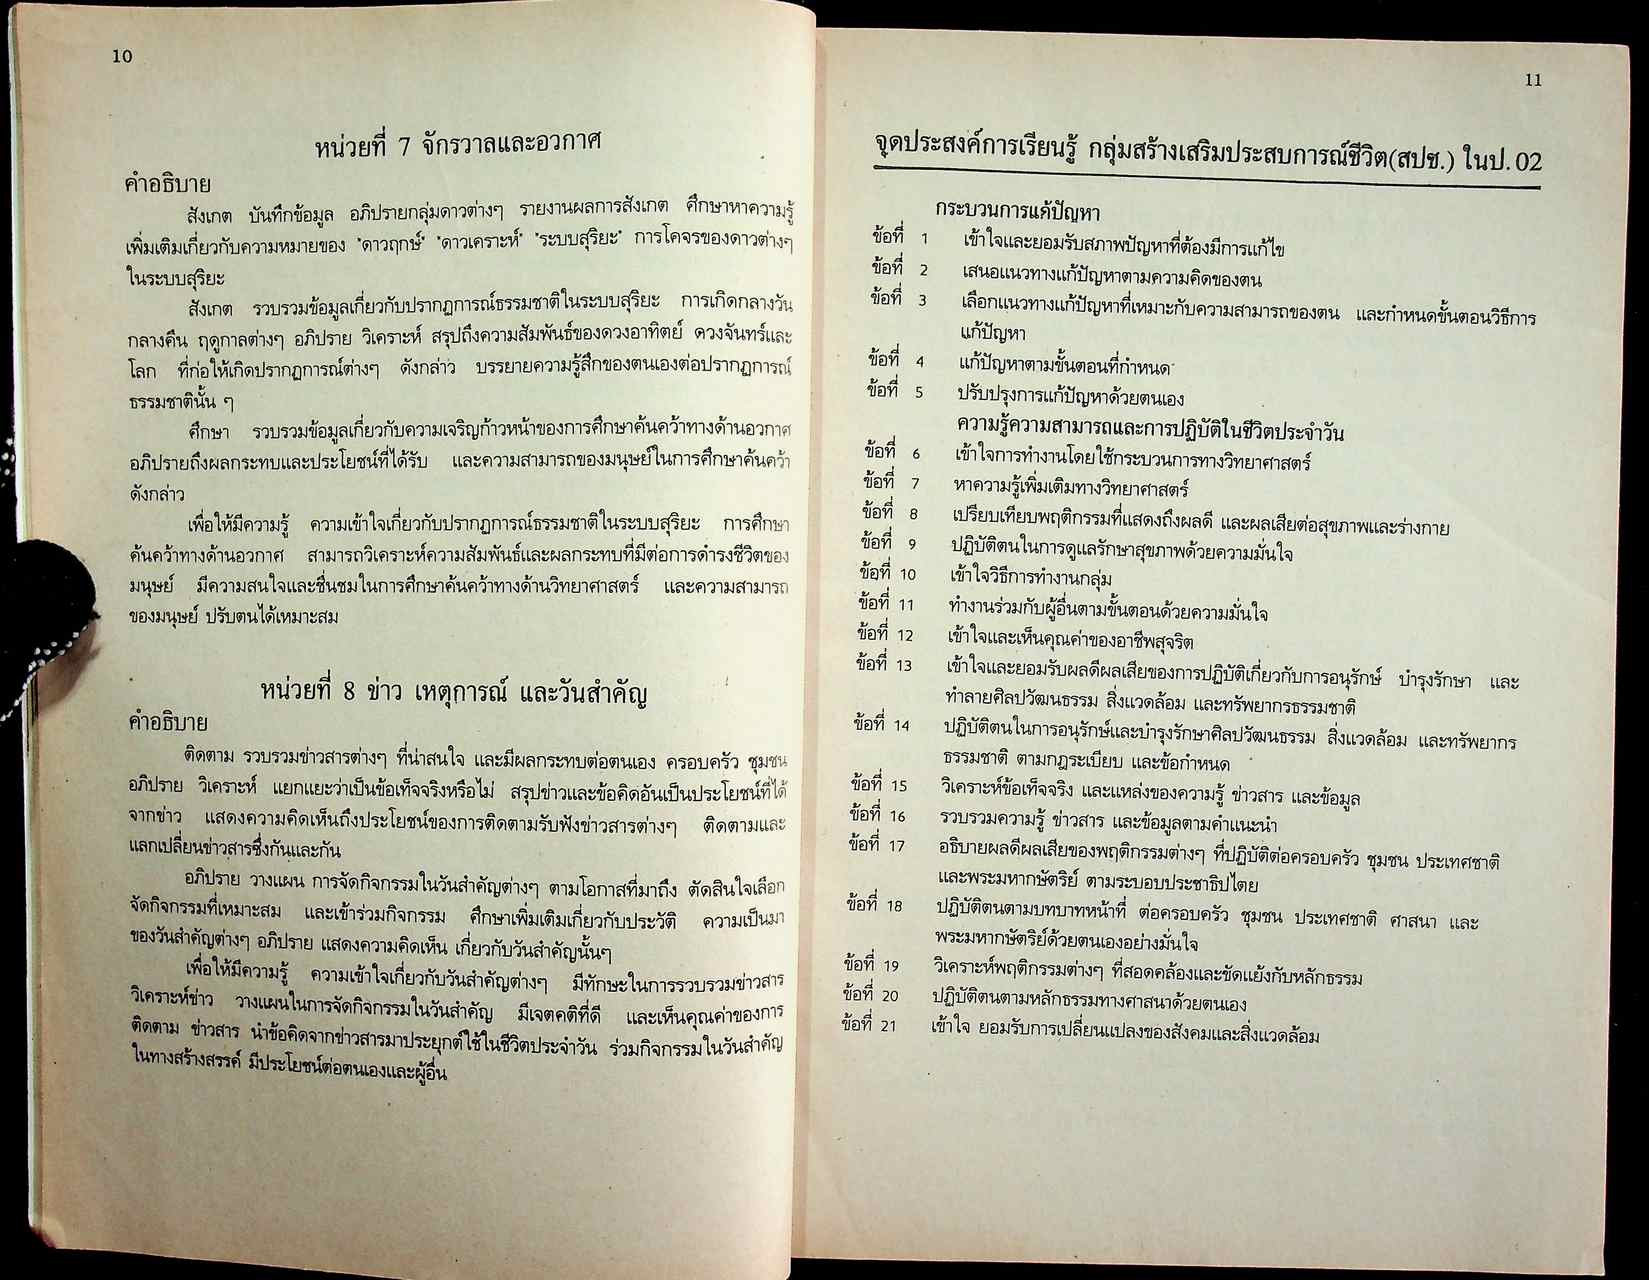 10
หน่วยที่ 7 จักรวาลและอวกาศ
คำอธิบาย
สังเกต บันทึกข้อมูล อภิปรายกลุ่มดาวต่างๆ รายงานผลการสังเกต ศึกษาหาความรู้
เพิ่มเติมเกี่ยวกับความหมายของ "ดาวฤกษ์" "ดาวเคราะห์" "ระบบสุริยะ" การโคจรของดาวต่างๆ
ในระบบสุริยะ
สังเกต รวบรวมข้อมูลเกี่ยวกับปรากฏการณ์ธรรมชาติในระบบสุริยะ การเกิดกลางวัน
กลางคืน ฤดูกาลต่างๆ อภิปราย วิเคราะห์ สรุปถึงความสัมพันธ์ของดวงอาทิตย์ ดวงจันทร์และ
โลก ที่ก่อให้เกิดปรากฏการณ์ต่างๆ ดังกล่าว บรรยายความรู้สึกของตนเองต่อปรากฏการณ์
ธรรมชาตินั้น ๆ
ศึกษา รวบรวมข้อมูลเกี่ยวกับความเจริญก้าวหน้าของการศึกษาค้นคว้าทางด้านอวกาศ
อภิปรายถึงผลกระทบและประโยชน์ที่ได้รับ และความสามารถของมนุษย์ในการศึกษาค้นคว้า
ดังกล่าว
เพื่อให้มีความรู้ ความเข้าใจเกี่ยวกับปรากฏการณ์ธรรมชาติในระบบสุริยะ การศึกษา
ค้นคว้าทางด้านอวกาศ สามารถวิเคราะห์ความสัมพันธ์และผลกระทบที่มีต่อการดำรงชีวิตของ
มนุษย์ มีความสนใจและชื่นชมในการศึกษาค้นคว้าทางด้านวิทยาศาสตร์ และความสามารถ
ของมนุษย์ ปรับตนได้เหมาะสม
หน่วยที่ 8 ข่าว เหตุการณ์ และวันสำคัญ
คำอธิบาย
ติดตาม รวบรวมข่าวสารต่างๆ ที่น่าสนใจ และมีผลกระทบต่อตนเอง ครอบครัว ชุมชน
อภิปราย วิเคราะห์ แยกแยะว่าเป็นข้อเท็จจริงหรือไม่ สรุปข่าวและข้อคิดอันเป็นประโยชน์ที่ได้
จากข่าว แสดงความคิดเห็นถึงประโยชน์ของการติดตามรับฟังข่าวสารต่างๆ ติดตามและ
แลกเปลี่ยนข่าวสารซึ่งกันและกัน
อภิปราย วางแผน การจัดกิจกรรมในวันสำคัญต่างๆ ตามโอกาสที่มาถึง ตัดสินใจเลือก
จัดกิจกรรมที่เหมาะสม และเข้าร่วมกิจกรรม ศึกษาเพิ่มเติมเกี่ยวกับประวัติ ความเป็นมา
ของวันสำคัญต่างๆ อภิปราย แสดงความคิดเห็น เกี่ยวกับวันสำคัญนั้นๆ
เพื่อให้มีความรู้ ความเข้าใจเกี่ยวกับวันสำคัญต่างๆ มีทักษะในการรวบรวมข่าวสาร
วิเคราะห์ข่าว วางแผนในการจัดกิจกรรมในวันสำคัญ มีเจตคติที่ดี และเห็นคุณค่าของการ
ติดตาม ข่าวสาร นำข้อคิดจากข่าวสารมาประยุกต์ใช้ในชีวิตประจำวัน ร่วมกิจกรรมในวันสำคัญ
ในทางสร้างสรรค์ มีประโยชน์ต่อตนเองและผู้อื่น
11
จุดประสงค์การเรียนรู้ กลุ่มสร้างเสริมประสบการณ์ชีวิต(สปช.) ในป.02
กระบวนการแก้ปัญหา
ข้อที่ 1 เข้าใจและยอมรับสภาพปัญหาที่ต้องมีการแก้ไข
ข้อที่ 2 เสนอแนวทางแก้ปัญหาตามความคิดของตน
ข้อที่ 3 เลือกแนวทางแก้ปัญหาที่เหมาะกับความสามารถของตน และกำหนดขั้นตอนวิธีการ
แก้ปัญหา
ข้อที่ 4 แก้ปัญหาตามขั้นตอนที่กำหนด
ข้อที่ 5 ปรับปรุงการแก้ปัญหาด้วยตนเอง
ความรู้ความสามารถและการปฏิบัติในชีวิตประจำวัน
ข้อที่ 6 เข้าใจการทำงานโดยใช้กระบวนการทางวิทยาศาสตร์
ข้อที่ 7 หาความรู้เพิ่มเติมทางวิทยาศาสตร์
ข้อที่ 8 เปรียบเทียบพฤติกรรมที่แสดงถึงผลดี และผลเสียต่อสุขภาพและร่างกาย
ข้อที่ 9 ปฏิบัติตนในการดูแลรักษาสุขภาพด้วยความมั่นใจ
ข้อที่ 10 เข้าใจวิธีการทำงานกลุ่ม
ข้อที่ 11 ทำงานร่วมกับผู้อื่นตามขั้นตอนด้วยความมั่นใจ
ข้อที่ 12 เข้าใจและเห็นคุณค่าของอาชีพสุจริต
ข้อที่ 13 เข้าใจและยอมรับผลดีผลเสียของการปฏิบัติเกี่ยวกับการอนุรักษ์ บำรุงรักษา และ
ทำลายศิลปวัฒนธรรม สิ่งแวดล้อม และทรัพยากรธรรมชาติ
ข้อที่ 14 ปฏิบัติตนในการอนุรักษ์และบำรุงรักษาศิลปวัฒนธรรม สิ่งแวดล้อม และทรัพยากร
ธรรมชาติ ตามกฎระเบียบ และข้อกำหนด
ข้อที่ 15 วิเคราะห์ข้อเท็จจริง และแหล่งของความรู้ ข่าวสาร และข้อมูล
ข้อที่ 16 รวบรวมความรู้ ข่าวสาร และข้อมูลตามคำแนะนำ
ข้อที่ 17 อธิบายผลดีผลเสียของพฤติกรรมต่างๆ ที่ปฏิบัติต่อครอบครัว ชุมชน ประเทศชาติ
และพระมหากษัตริย์ ตามระบอบประชาธิปไตย
ข้อที่ 18 ปฏิบัติตนตามบทบาทหน้าที่ ต่อครอบครัว ชุมชน ประเทศชาติ ศาสนา และ
พระมหากษัตริย์ด้วยตนเองอย่างมั่นใจ
ข้อที่ 19 วิเคราะห์พฤติกรรมต่างๆ ที่สอดคล้องและขัดแย้งกับหลักธรรม
ข้อที่ 20 ปฏิบัติตนตามหลักธรรมทางศาสนาด้วยตนเอง
ข้อที่ 21 เข้าใจ ยอมรับการเปลี่ยนแปลงของสังคมและสิ่งแวดล้อม